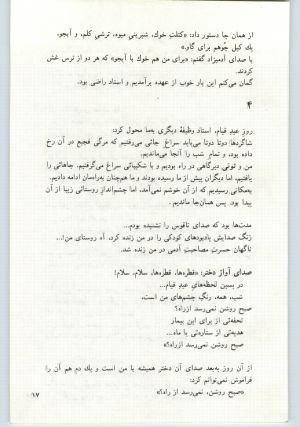 از همان جا دستور داد: «کتلتِ خوک، شیرینیِ میوه، ترشیِ کلم، و آبجو،
یك كیل جوهم برای گاو.»
با صدای آدمیزاد گفتم: «برای من هم خوك با آبجو» که هر دو از ترس غش
کردند.
گمان می‌کنم این بار خوب از عهده برآمدیم و استاد راضی بود.
۴
روزِ عیدِ قیام، استاد وظیفهٔ دیگری به‌ما محول کرد:
شاگردها دوتا دوتا می‌باید سراغِ جائی می‌رفتیم که مرگی فجیع در آن رخ
داده بود، و تمامِ شب را آنجا می‌ماندیم.
من و تونی دیرگاهی در راه بودیم و با شکیبائی سراغ می‌گرفتیم. جاهائی را
یافتیم، اما دیگران پیش از ما رسیده بودند و ما هم‌چنان به‌راهمان ادامه دادیم.
به‌مکانی رسیدیم که از آن خوشم نمی‌آمد، اما چشم‌اندازِ روستائی زیبا از آن
پیدا بود. پس همان‌جا ماندیم.
مدت‌ها بود که صدای ناقوس را نشنیده بودم...
زنگِ صدایش یادبودهای کودکی را در من زنده کرد، آه روستای من!...
ناگهان حسرتِ مصاحبت آدمی در من زنده شد.
صدای آوازِ دختر: «قطره‌ها، قطره‌ها، سلام، سلام!
در پسینِ لحظه‌های عیدِ قیام...
شب، همه، رنگِ چشم‌های من است،
صبحِ روشن نمی‌رسد ازراه؟
تحفه‌ئی از برای این بیمار
هدیه‌ئی از ستاره‌ئی یا ماه...
صبحِ روشن نمی‌رسد ازراه؟»
از آن روز به‌بعد صدای آن دختر همیشه با من است و یك دم هم آن را
فراموش نمی‌توانم کرد:
«صبحِ روشن، نمی‌رسد از راه؟»
۱۷